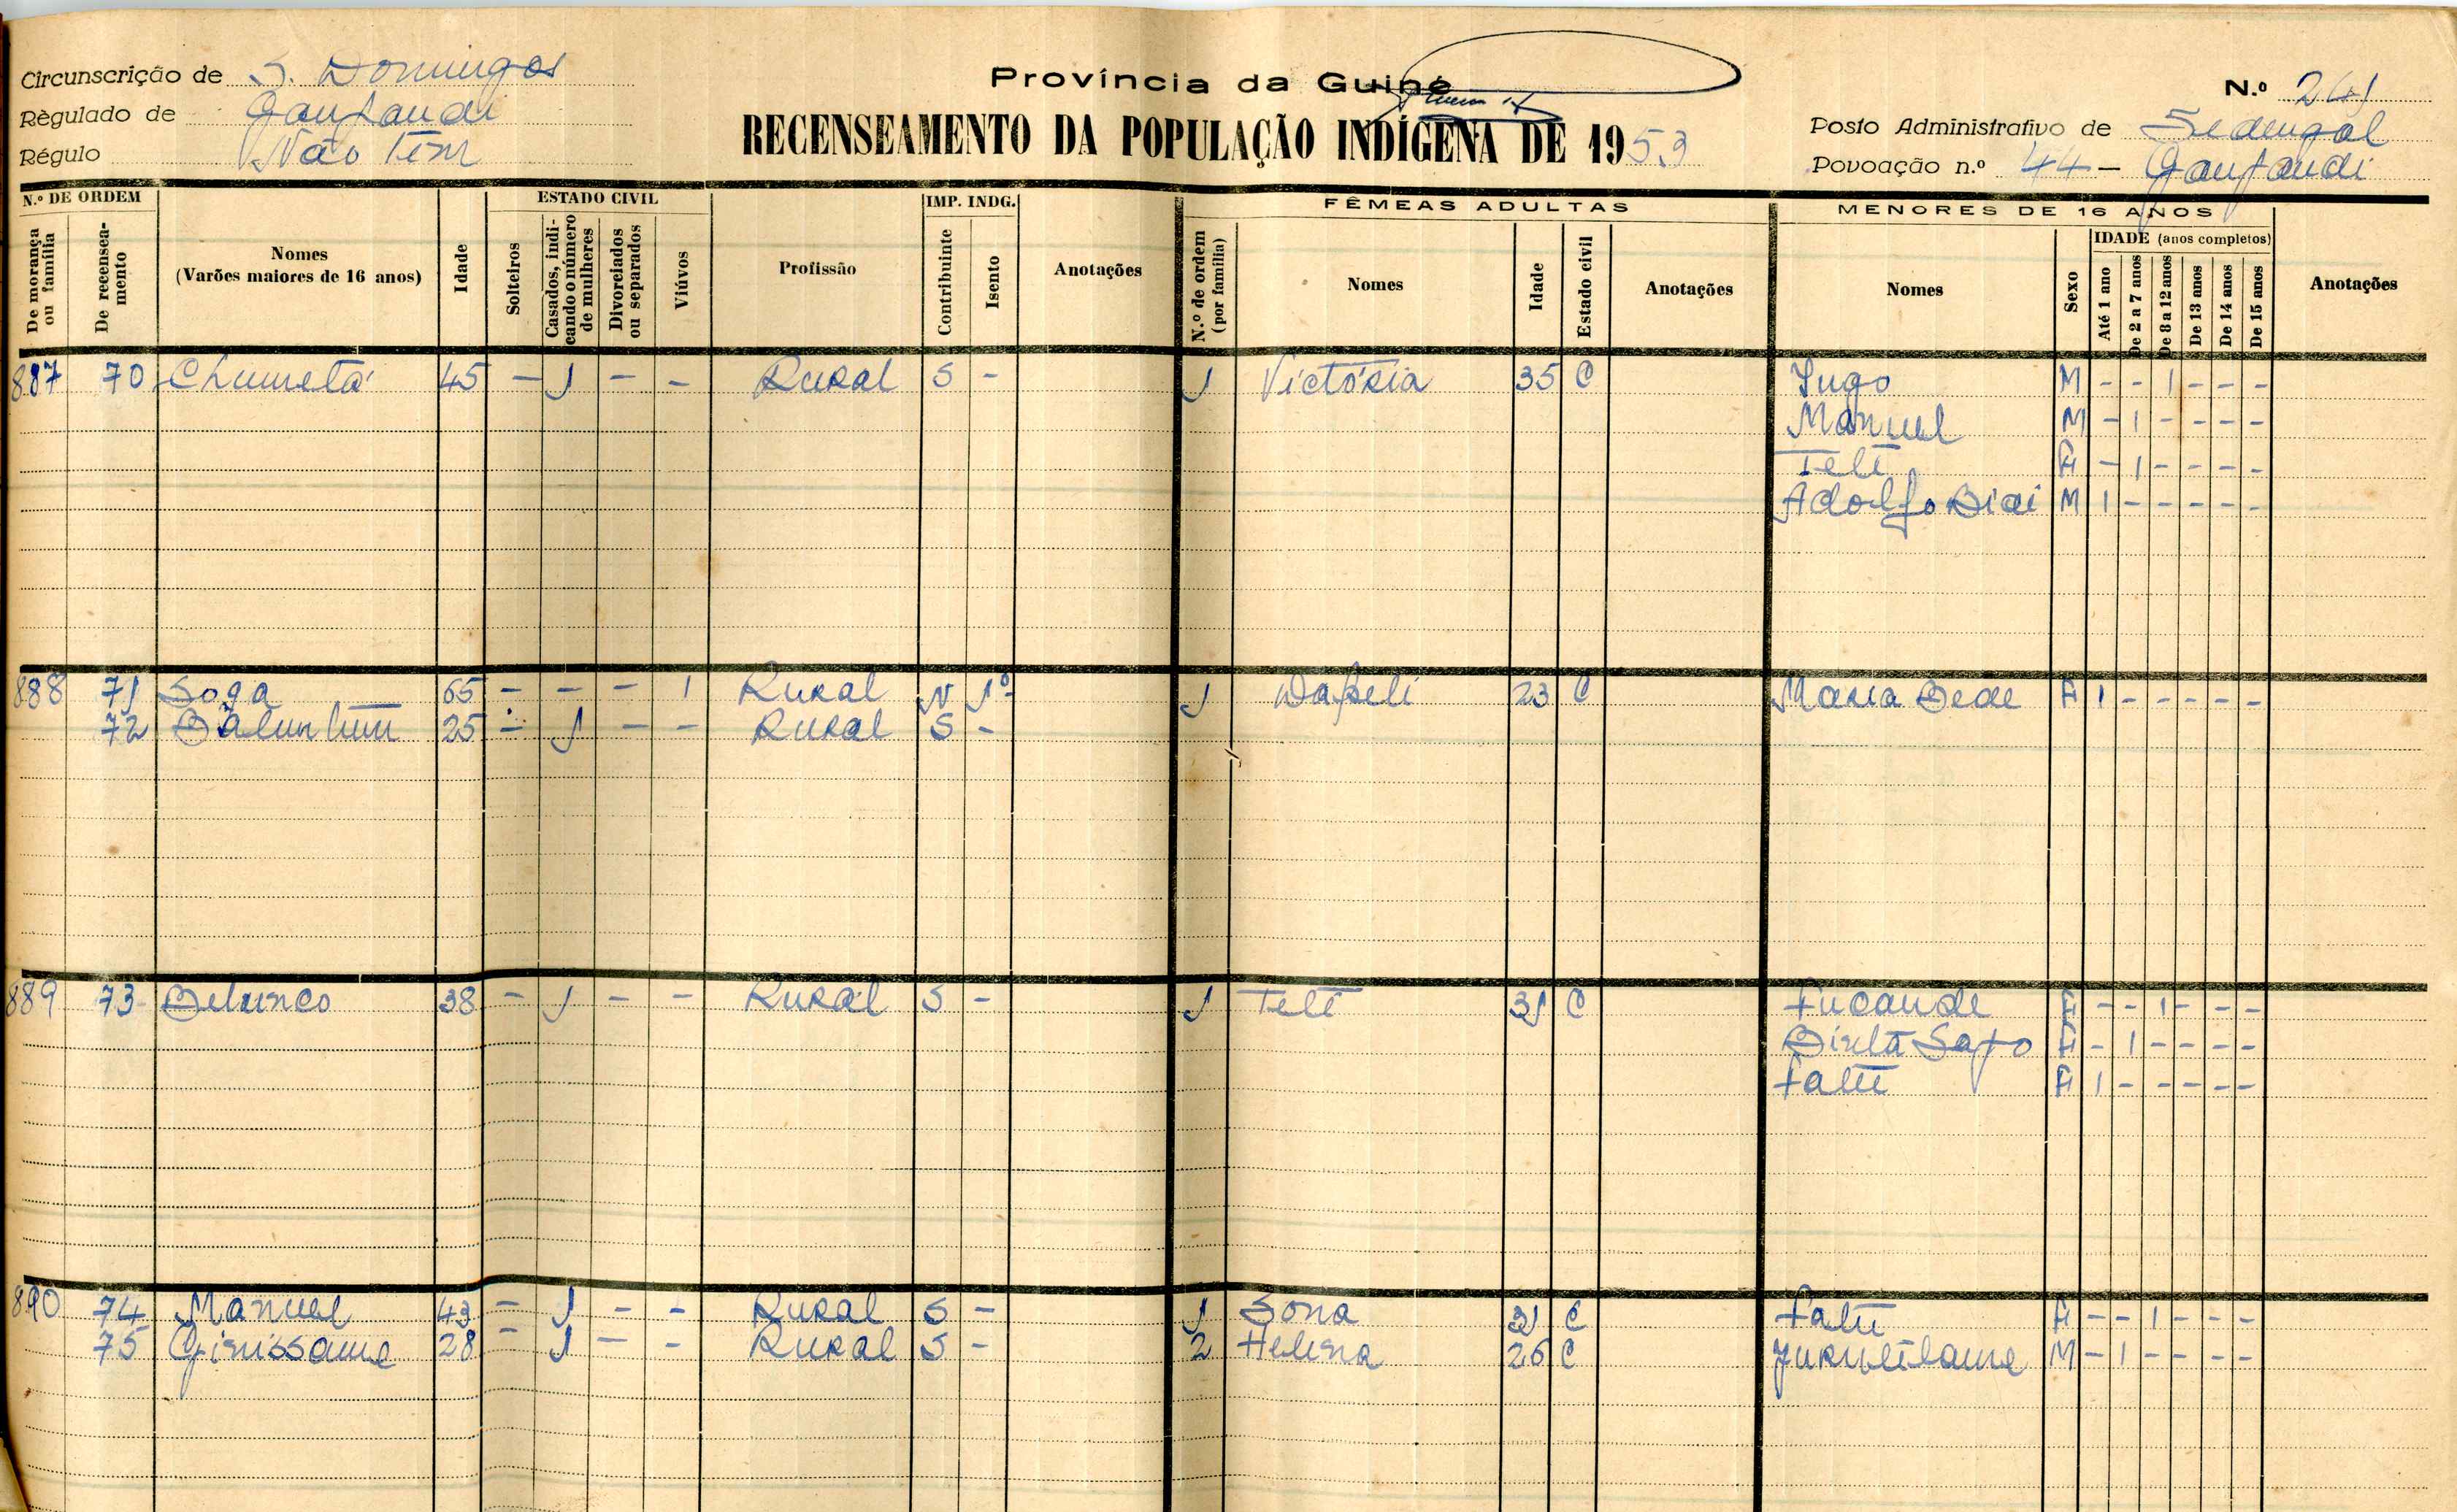 Circunscrição de S. Domingos
Règulado de
Régulo Não Tem
Província da Guiné
RECENSEAMENTO DA POPULAÇÃO INDÍGENA DE 1953
N.º 241
Posto Administrativo de Sedengal
Povoação n.º 44 –
N.º DE ORDEM
De morança ou família
De recenseamento
Nomes
(Varões maiores de 16 anos)
Idade
ESTADO CIVIL
Solteiros
Casados, indicando o número de mulheres
Divorciados ou separados
Viúvos
Profissão
IMP. INDG.
Contribuinte
Isento
Anotações
FÊMEAS ADULTAS
N.º de ordem (por família)
Nomes
Idade
Estado civil
Anotações
MENORES DE 16 ANOS
Nomes
Sexo
IDADE (anos completos)
Até 1 ano
De 2 a 7 anos
De 8 a 12 anos
De 13 anos
De 14 anos
De 15 anos
Anotações
887 70 45 – 1 – – Rural S – 1 Victória 35 C M – – 1 – – –
Manuel M – 1 – – – –
F – 1 – – – –
Adolfo M 1 – – – – –
888 71 Soga 65 – – – 1 Rural N 1º 1 23 C Maria F 1 – – – – –
72 25 – 1 – – Rural S –
889 73 38 – 1 – – Rural S – 1 31 C F – – 1 – – –
F – 1 – – – –
F 1 – – – – –
890 74 Manuel 43 – 1 – – Rural S – 1 Sona 31 C F – – 1 – – –
75 28 – 1 – – Rural S – 2 Helena 26 C M – 1 – – – –